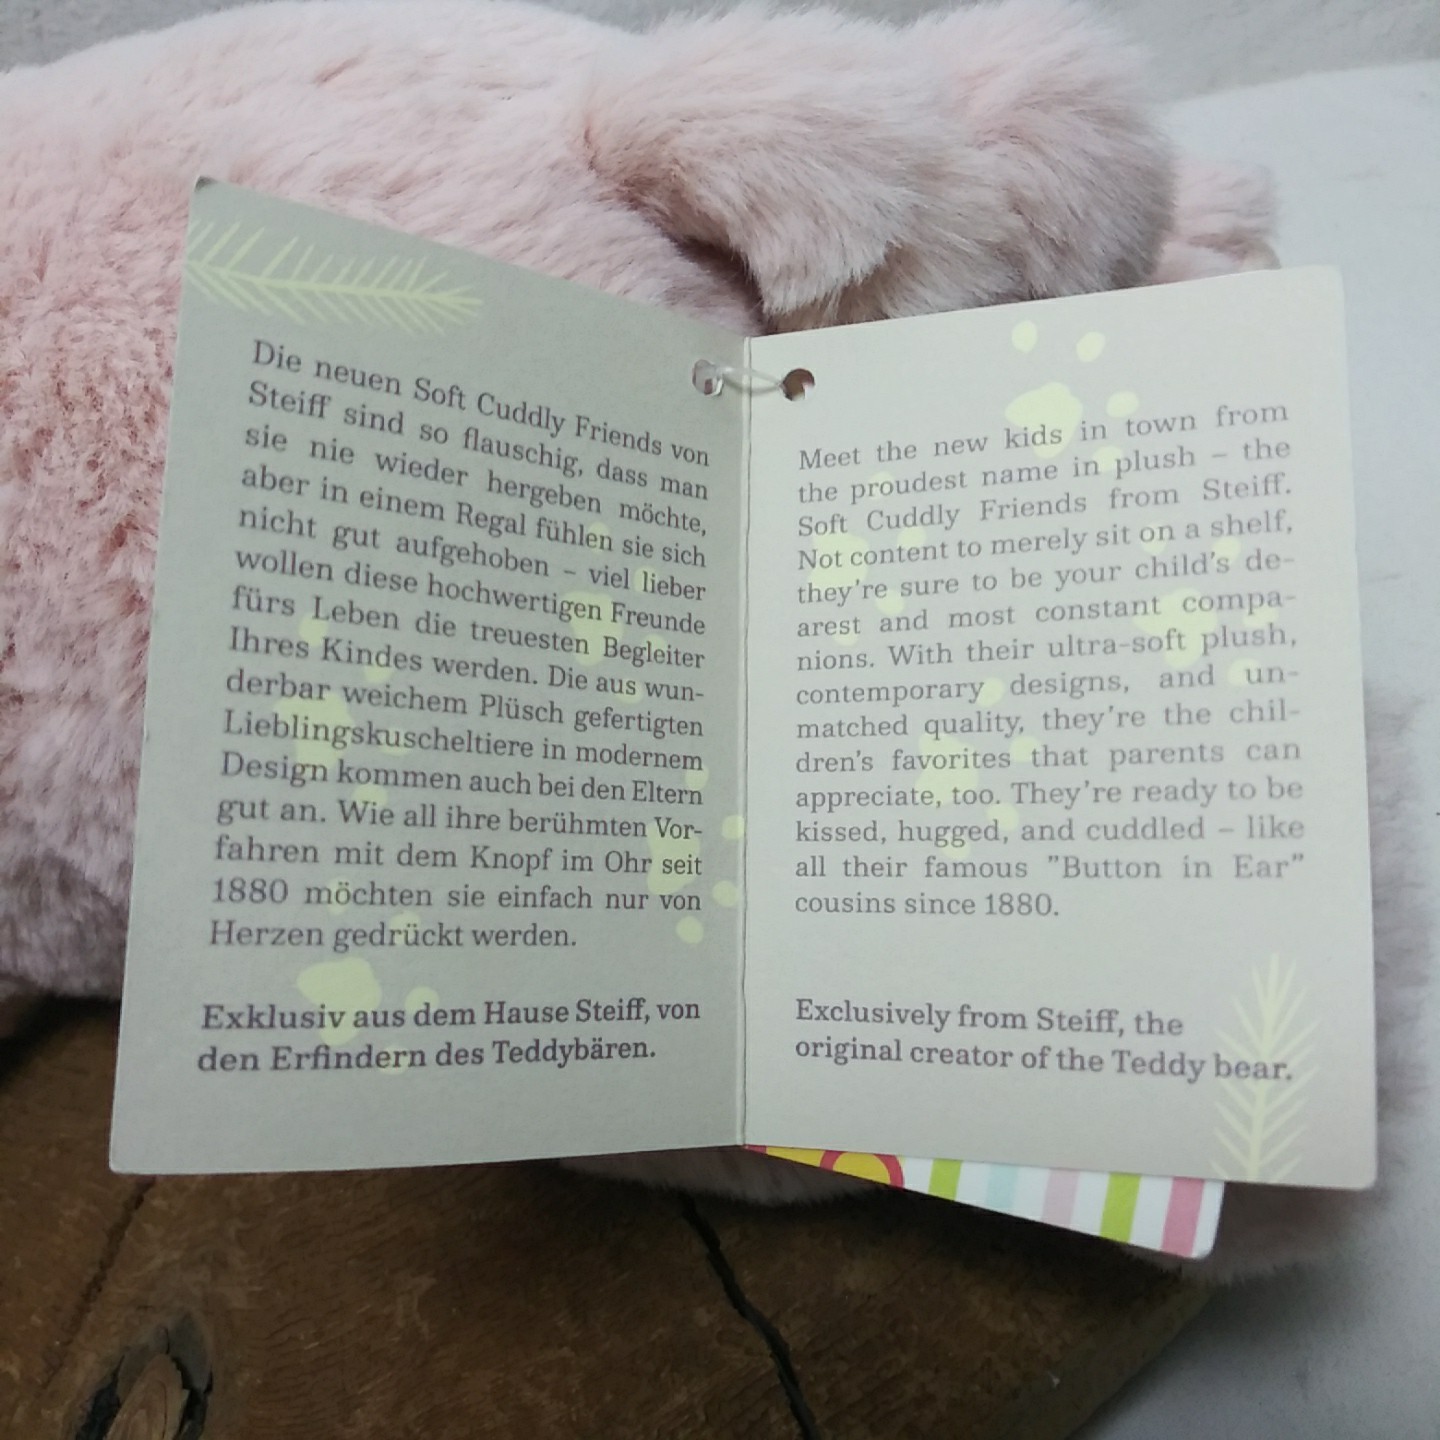 Die neuen Soft Cuddly Friends von
Steiff sind so flauschig, dass man
sie nie wieder hergeben möchte,
aber in einem Regal fühlen sie sich
nicht gut aufgehoben – viel lieber
wollen diese hochwertigen Freunde
fürs Leben die treuesten Begleiter
Ihres Kindes werden. Die aus wun-
derbar weichem Plüsch gefertigten
Lieblingskuscheltiere in modernem
Design kommen auch bei den Eltern
gut an. Wie all ihre berühmten Vor-
fahren mit dem Knopf im Ohr seit
1880 möchten sie einfach nur von
Herzen gedrückt werden.
Exklusiv aus dem Hause Steiff, von
den Erfindern des Teddybären.
Meet the new kids in town from
the proudest name in plush – the
Soft Cuddly Friends from Steiff.
Not content to merely sit on a shelf,
they're sure to be your child's de-
arest and most constant compa-
nions. With their ultra-soft plush,
contemporary designs, and un-
matched quality, they're the chil-
dren's favorites that parents can
appreciate, too. They're ready to be
kissed, hugged, and cuddled – like
all their famous "Button in Ear"
cousins since 1880.
Exclusively from Steiff, the
original creator of the Teddy bear.